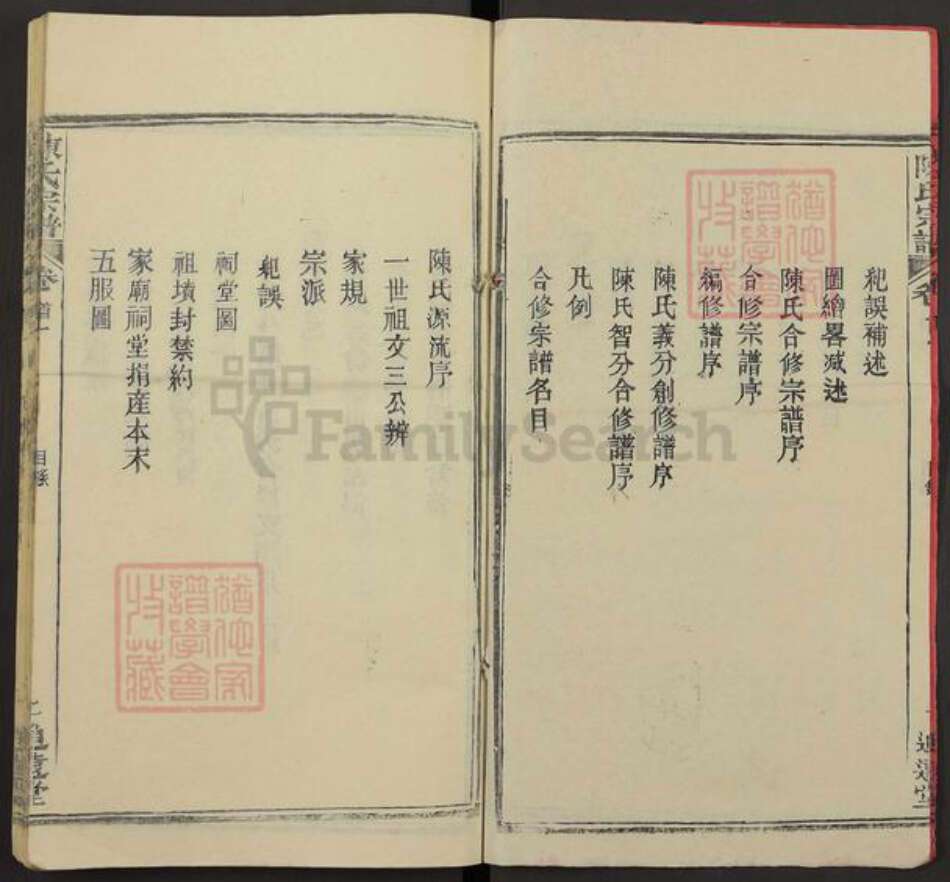 陳氏宗譜
紕誤補述
圖繪畧减述
陳氏合修宗譜序
合修宗譜序
編修譜序
陳氏義分創修譜序
陳氏智分合修譜序
凡例
合修宗譜名目
陳氏源流序
一世祖文三公辨
家規
宗派
紕誤
祠堂圖
祖墳封禁約
家廟祠堂捐產本末
五服圖
陳氏宗譜
卷首一
目錄
二
追遠堂
猶他家
譜學會
收藏
FamilySearch